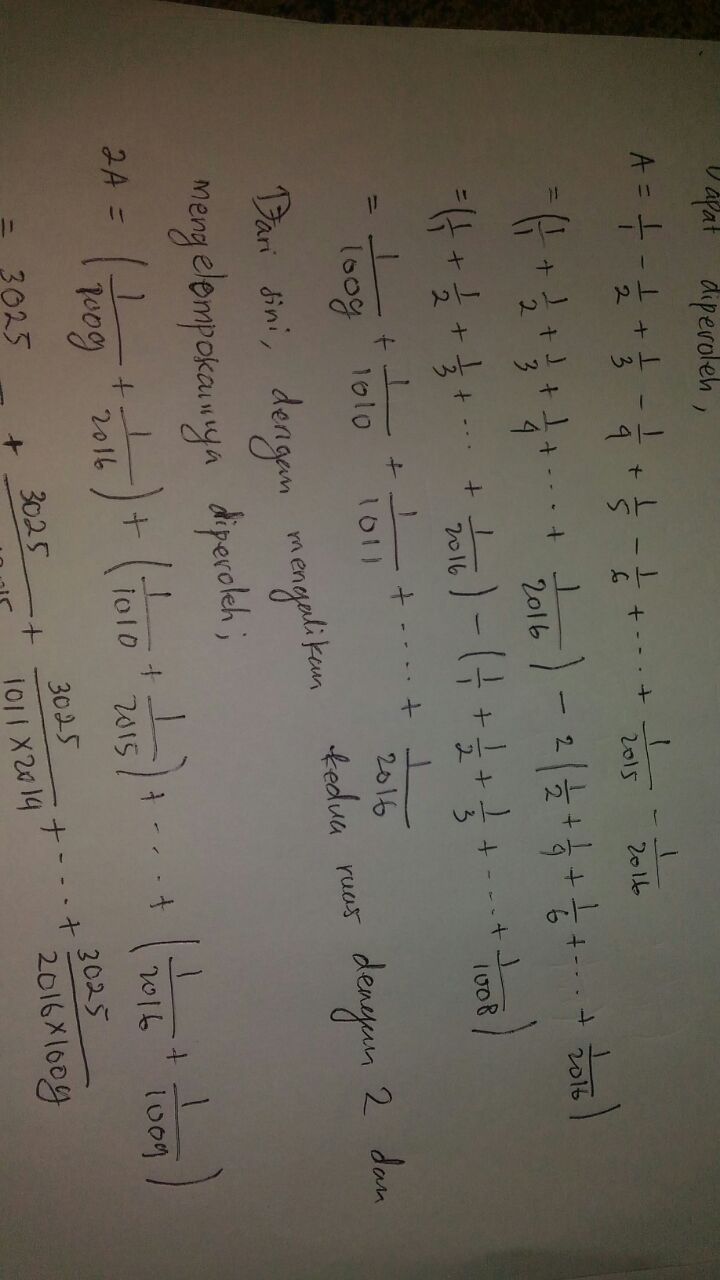 Dapat diperoleh,
A = 1/1 - 1/2 + 1/3 - 1/4 + 1/5 - 1/6 + ... + 1/2015 - 1/2016
= (1/1 + 1/2 + 1/3 + 1/4 + ... + 1/2016) - 2(1/2 + 1/4 + 1/6 + ... + 1/2016)
= (1/1 + 1/2 + 1/3 + ... + 1/2016) - (1/1 + 1/2 + 1/3 + ... + 1/1008)
= 1/1009 + 1/1010 + 1/1011 + .... + 1/2016
Dari sini, dengan mengalikan kedua ruas dengan 2 dan
mengelompokannya diperoleh;
2A = (1/1009 + 1/2016) + (1/1010 + 1/2015) + .... + (1/2016 + 1/1009)
= 3025 + 3025 + 3025/1011×2014 + ... + 3025/2016×1009